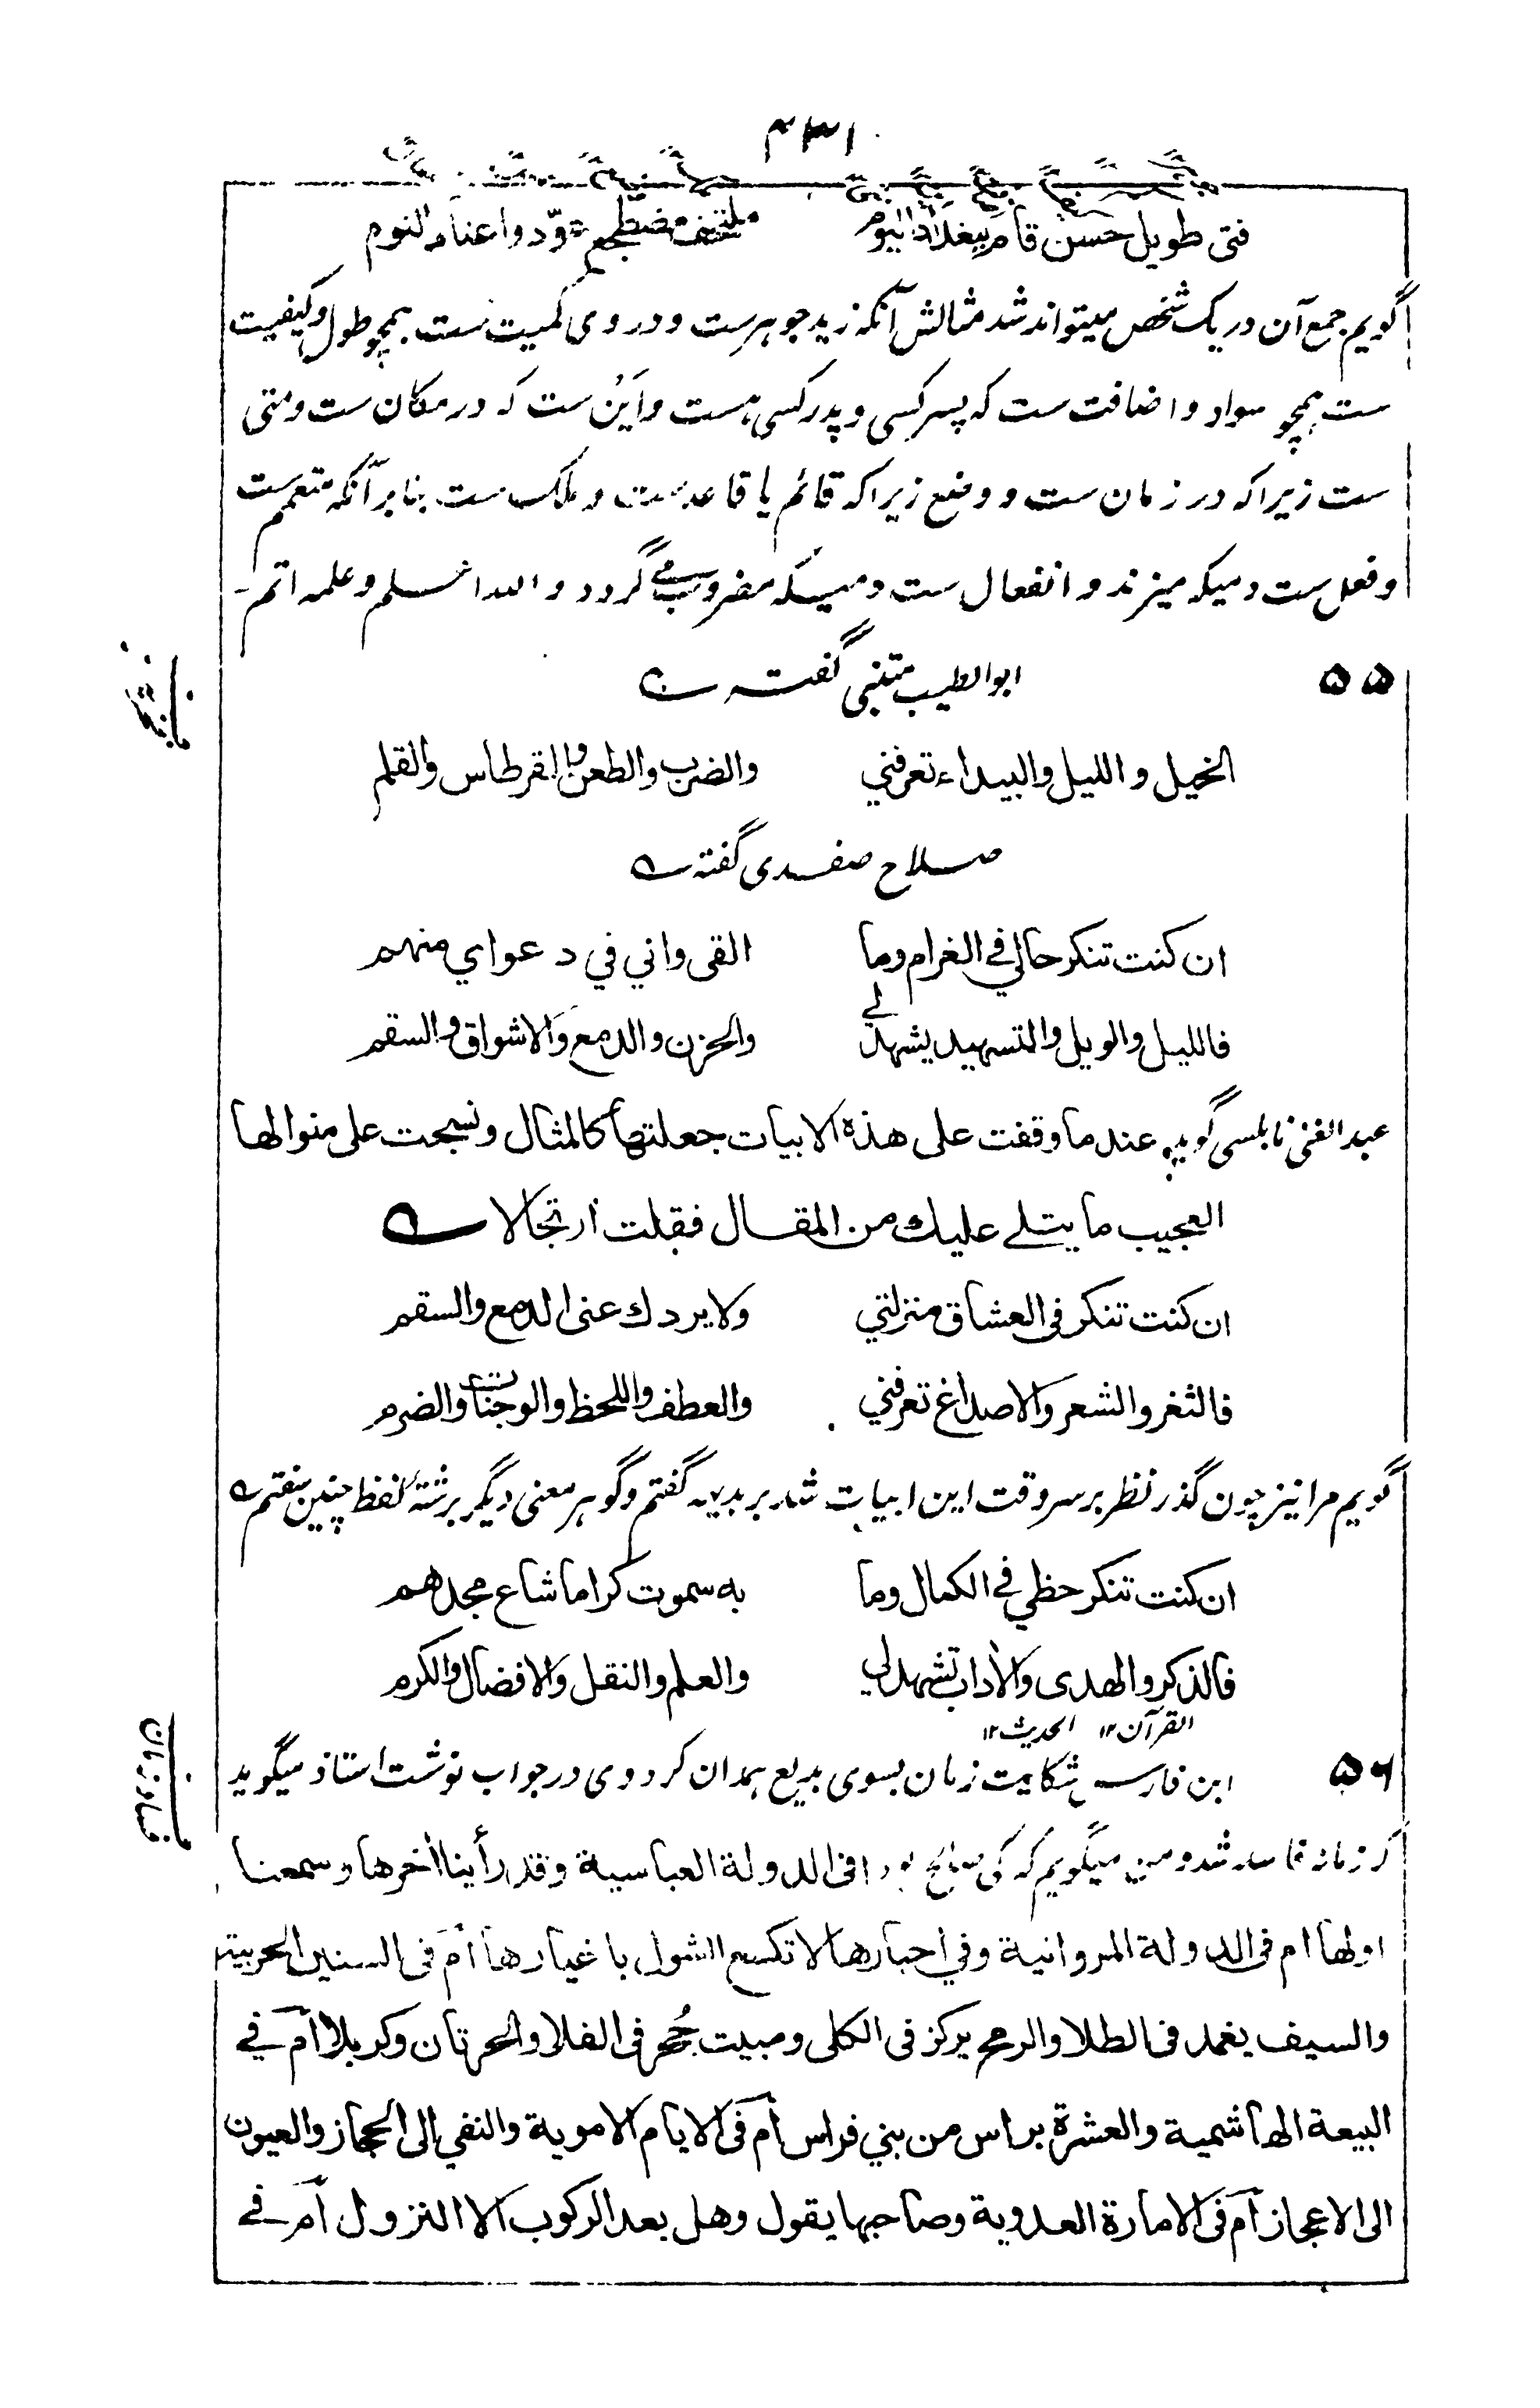 ۴۳۱
فتى طويل حسن قام ببغداد اليوم ملتحف مضطجع ودوا عنام النوم
گویم جمع آن در یک شخص میتواند شد مثالش آنکه زید جوهرست و در وی کمیت ست همچو طول و کیفیت
ست همچو سواد و اضافت ست که پسر کسی و پدر کسی هست و اَیْن ست که در مکان ست و متی
ست زیرا که در زمان ست و وضع زیرا که قائم یا قاعد ست و ملک ست بنا بر آنکه متعمم ست
و فعل ست دمیکه میزند و انفعال ست دمیکه مضروب می گردد و الله اعلم و علمه اتم
۵۵ ابو الطیب متنبی گفته
الخيل والليل والبيداء تعرفني والضرب والطعن والقرطاس والقلم
صلاح صفدی گفته
ان كنت تنكر حالي في الغرام وما القى واني في دعواي منهم
فالليل والويل والتسهيد يشهد لي والحزن والدمع والاشواق والسقم
عبد الغنی نابلسی گوید عندما وقفت على هذه الابيات جعلتها كالمثال ونسجت على منوالها
العجيب ما يتلى عليك من المقال فقلت ارتجالا
ان كنت تنكر في العشاق منزلتي ولا يردك عنى الدمع والسقم
فالثغر والشعر والاصداغ تعرفني والعطف واللحظ والوجنات والضرم
گویم مرا نیز چون گذر نظر بر سر وقت این ابیات شد بر بدیهه گفتم و گوهر معنی دیگر برشتهٔ لفظ چنین سفتم
ان كنت تنكر حظي في الكمال وما به سموت كراما شاع مجدهم
فالذكر والهدى والآداب تشهد لي والعلم والنقل والافضال والكرم
القرآن ۱۲ الحديث ۱۲
۵۶ ابن فارس شکایت زمان بسوی بدیع همدان کرد وی در جواب نوشت استاذ میگوید
که زمانه فاسد شد و من میگویم که کی صالح بود افى الدولة العباسية وقد رأينا أخرها وسمعنا
اولها ام فى الدولة المروانية وفي اخبارها لا تكسع الشول باغبارها أم فى السنين الحربية
والسيف يغمد فى الطلا والرمح يركز فى الكلى ومبيت حُجر فى الفلا والحرتان وكربلا أم في
البيعة الهاشمية والعشرة براس من بني فراس أم فى الايام الاموية والنفي الى الحجاز والعيون
الى الاعجاز أم فى الامارة العدوية وصاحبها يقول وهل بعد الركوب الا النزول أم في
فساد زمان